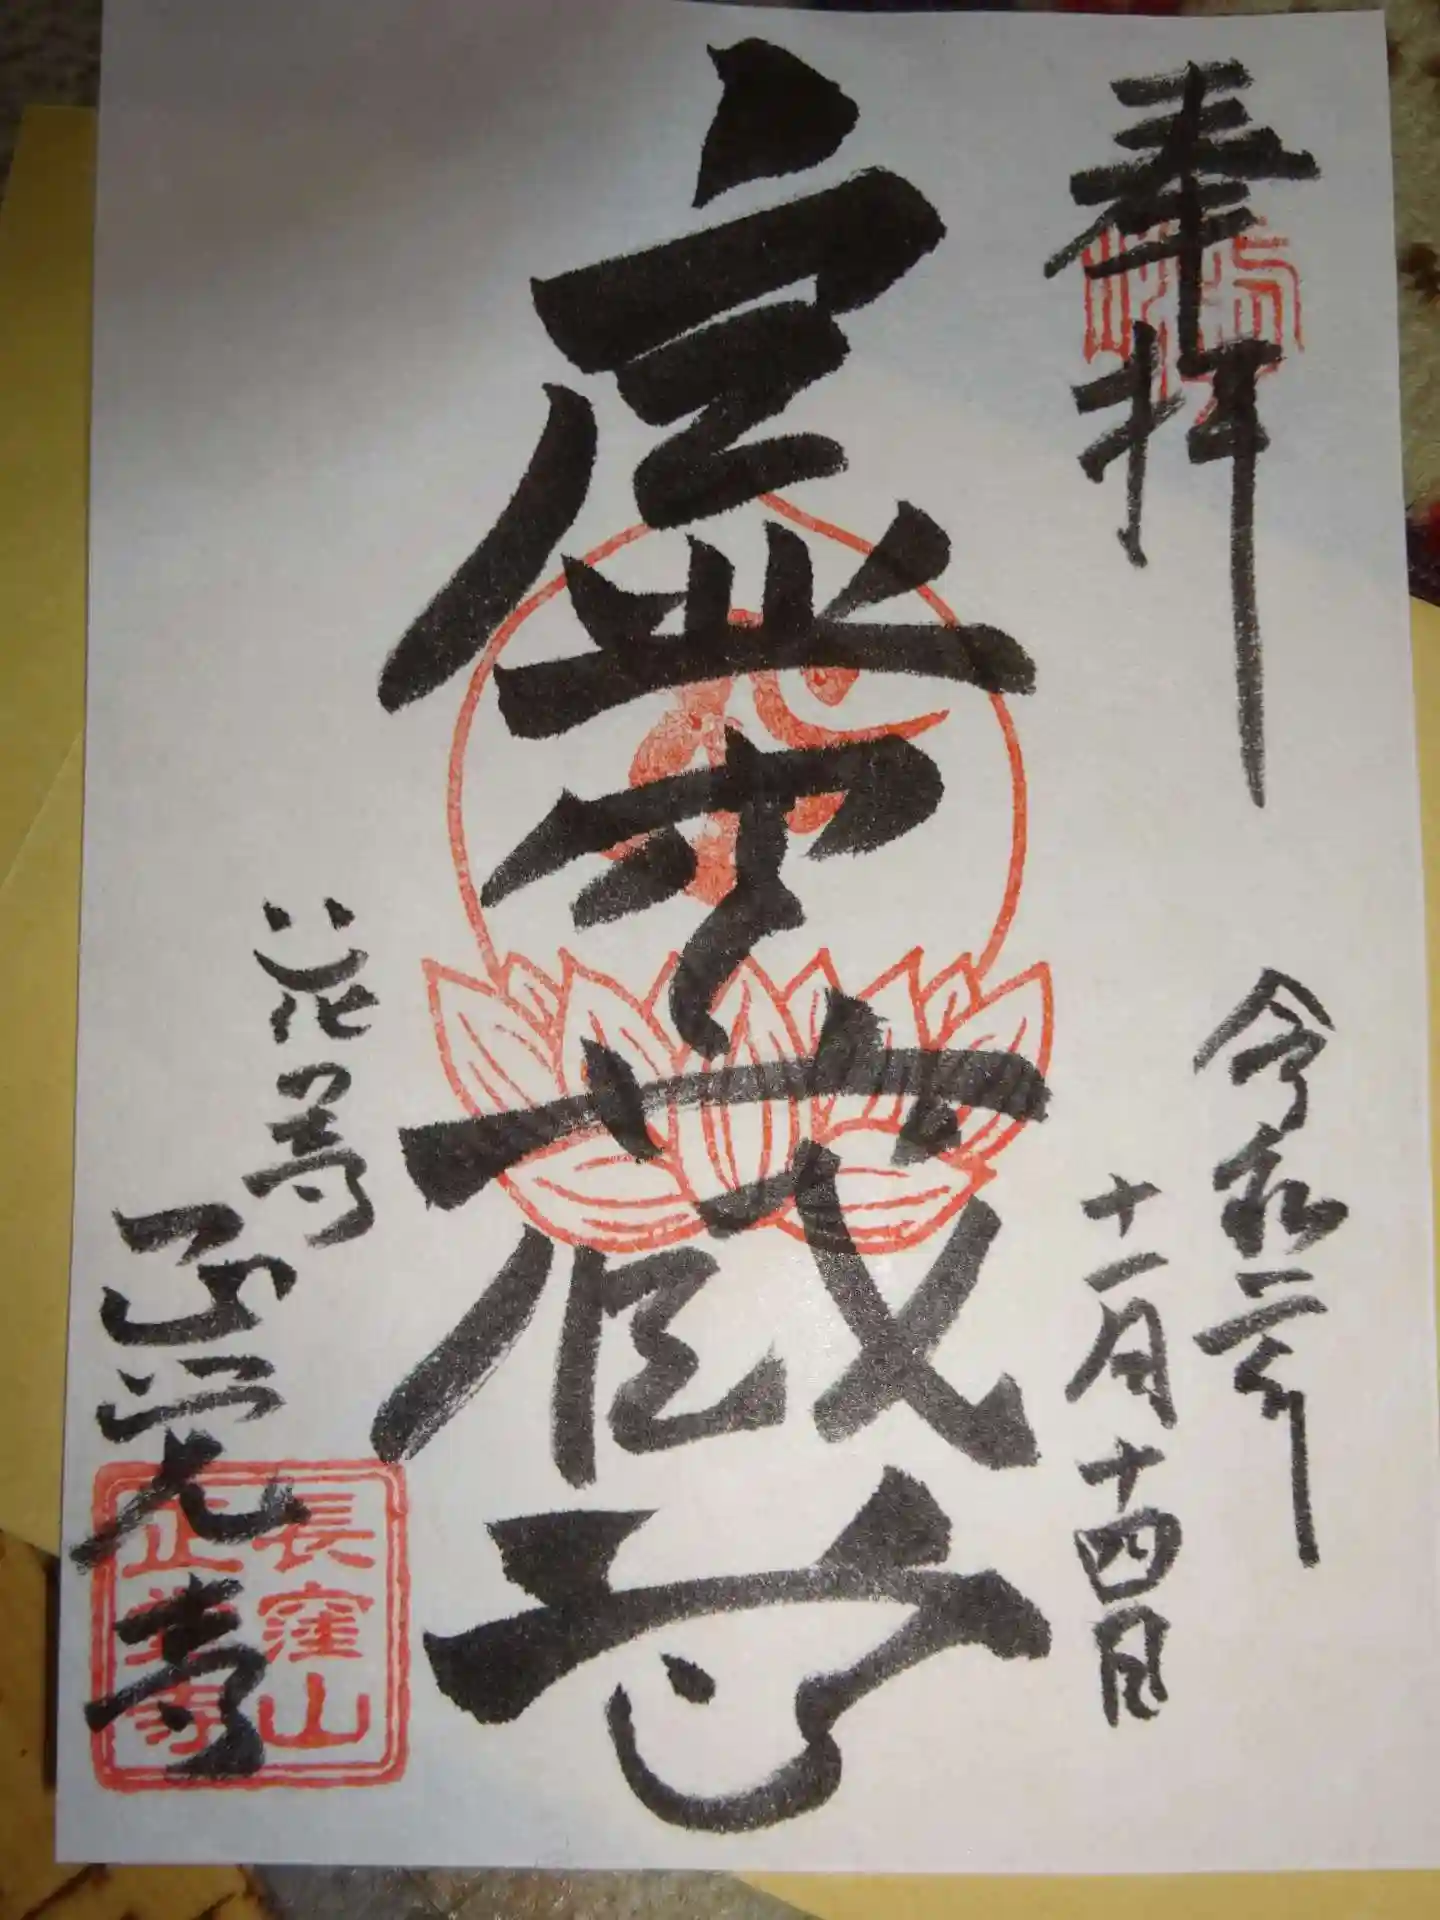 奉拝
令和二年
十一月十四日
虚空蔵尊
花の寺
正覚寺
長窪山